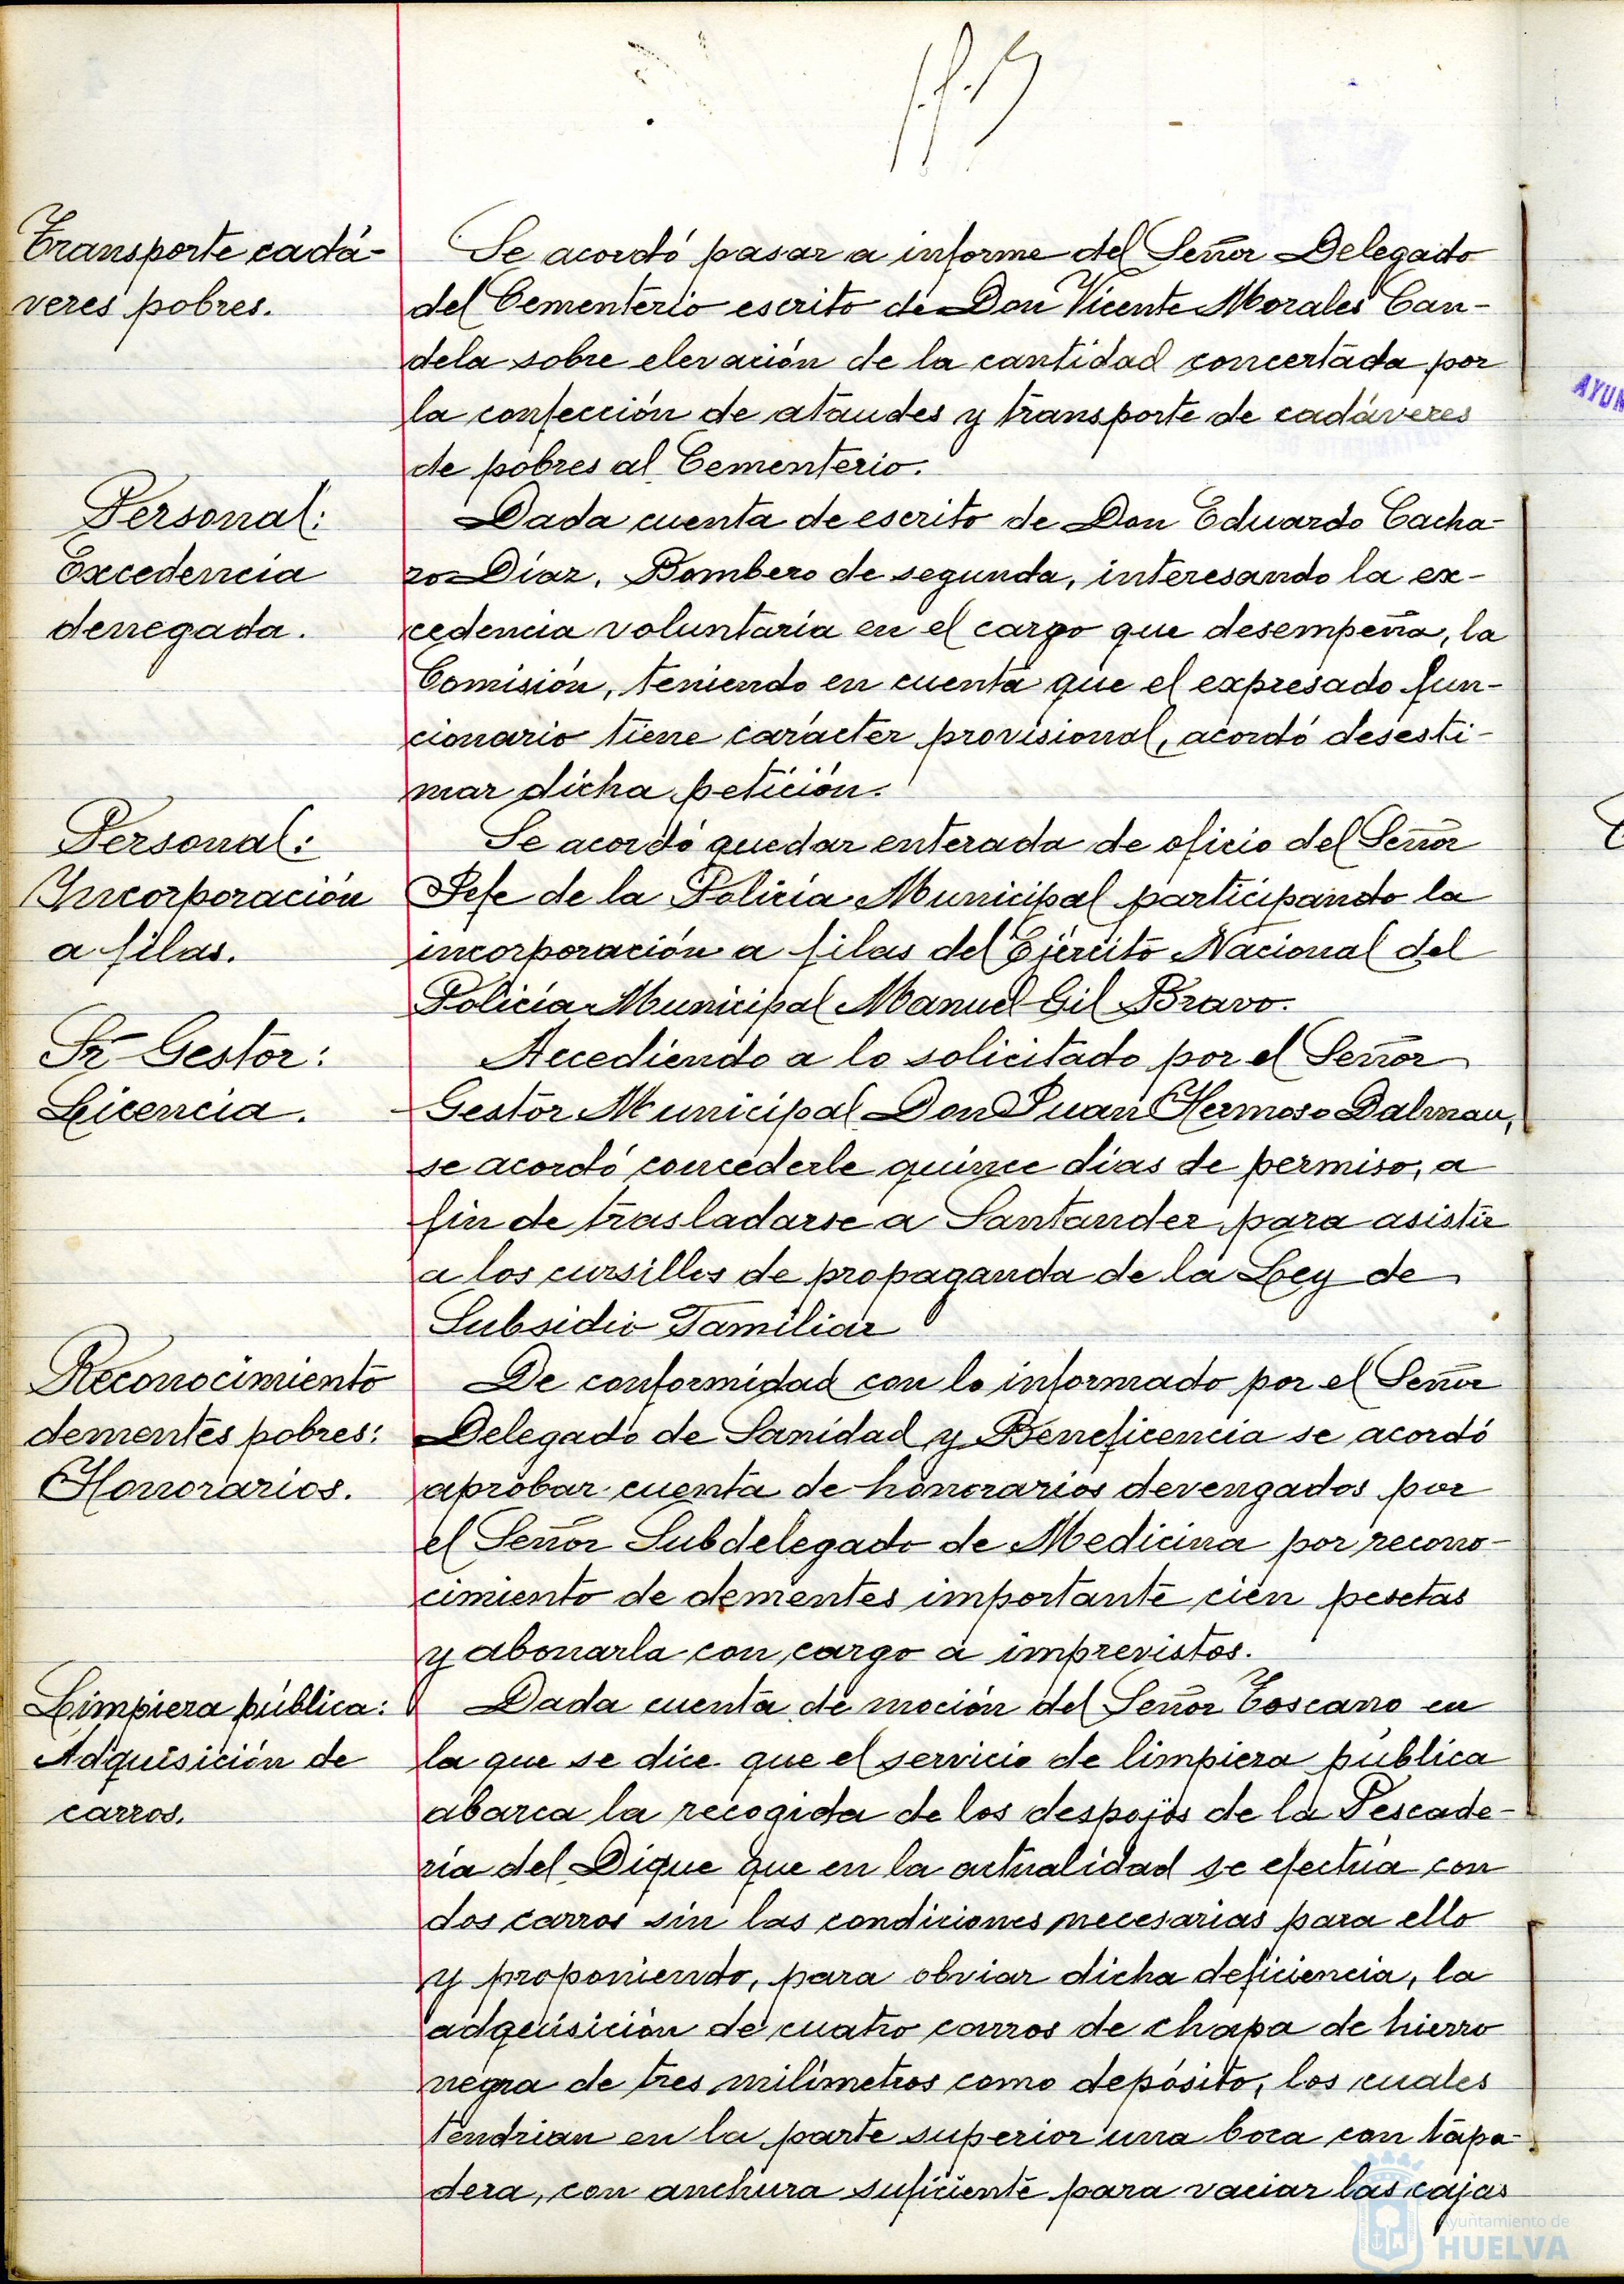 Transporte cadá-
veres pobres.
Se acordó pasar a informe del Señor Delegado
del Cementerio escrito de Don Vicente Morales Can-
dela sobre elevación de la cantidad concertada por
la confección de ataudes y transporte de cadáveres
de pobres al Cementerio.
Personal:
Excedencia
denegada.
Dada cuenta de escrito de Don Eduardo Cacha-
ro Díaz, Bombero de segunda, interesando la ex-
cedencia voluntaria en el cargo que desempeña, la
Comisión, teniendo en cuenta que el expresado fun-
cionario tiene carácter provisional, acordó desesti-
mar dicha petición.
Personal:
Incorporación
a filas.
Se acordó quedar enterada de oficio del Señor
Jefe de la Policía Municipal participando la
incorporación a filas del Ejército Nacional del
Policía Municipal Manuel Gil Bravo.
Sr. Gestor:
Licencia.
Accediendo a lo solicitado por el Señor
Gestor Municipal Don Juan Hermoso Dalmau,
se acordó concederle quince días de permiso, a
fin de trasladarse a Santander para asistir
a los cursillos de propaganda de la Ley de
Subsidio Familiar
Reconocimiento
dementes pobres:
Honorarios.
De conformidad con lo informado por el Señor
Delegado de Sanidad y Beneficencia se acordó
aprobar cuenta de honorarios devengados por
el Señor Subdelegado de Medicina por recono-
cimiento de dementes importante cien pesetas
y abonarla con cargo a imprevistos.
Limpieza pública:
Adquisición de
carros.
Dada cuenta de moción del Señor Toscano en
la que se dice que el servicio de limpieza pública
abarca la recogida de los despojos de la Pescade-
ría del Dique que en la actualidad se efectúa con
dos carros sin las condiciones necesarias para ello
y proponiendo, para obviar dicha deficiencia, la
adquisición de cuatro carros de chapa de hierro
negra de tres milímetros como depósito, los cuales
tendrían en la parte superior una boca con tapa-
dera, con anchura suficiente para vaciar las cajas
AYUN
Ayuntamiento de
HUELVA